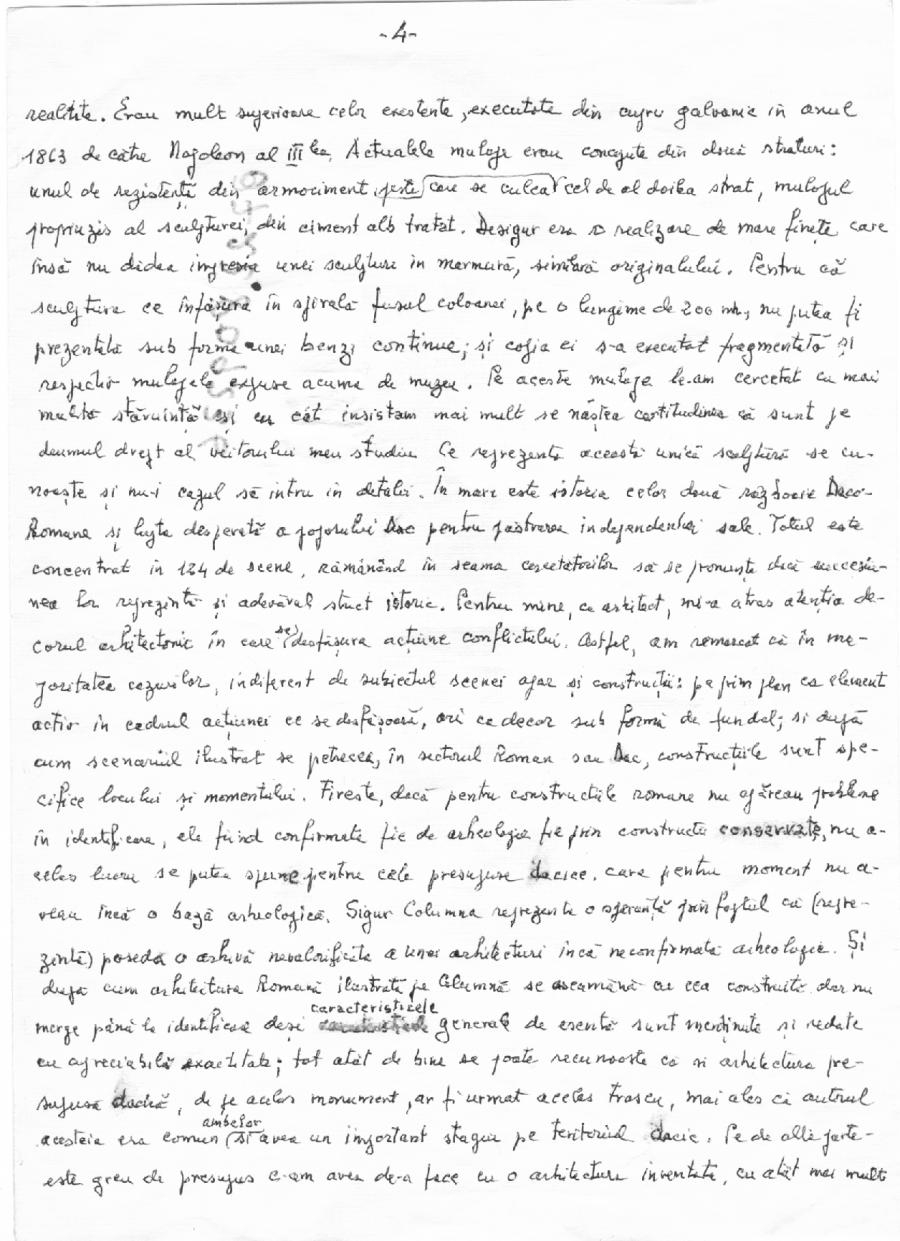 -4-
realitate. Erau mult superioare celor existente, executate din cupru galvanic în anul
1863 de către Napoleon al III lea. Actualele mulaje erau concepute din două straturi:
unul de rezistență din armociment, peste care se culca cel de al doilea strat, mulajul
propriuzis al sculpturei, din ciment alb tratat. Desigur era o realizare de mare finețe care
însă nu dădea impresia unei sculpturi în marmură, similară originalului. Pentru că
sculptura ce înfășura în spirală fusul coloanei, pe o lungime de 200 m, nu putea fi
prezentată sub forma unei benzi continue, și copia ei s-a executat fragmentată și
respectiv mulajele expuse acuma de muzeu. Pe aceste mulaje le-am cercetat cu mai
multă stăruință și cu cât insistam mai mult se năștea certitudinea că sunt pe
drumul drept al viitorului meu studiu. Ce reprezenta această unică sculptură se cu-
noaște și nu-i cazul să intru în detalii. În mare este istoria celor două războaie Daco-
Romane și lupta desperată a poporului Dac pentru păstrarea independenței sale. Totul este
concentrat în 124 de scene, rămânând în seama cercetătorilor să se pronunțe dacă succesiu-
nea lor reprezintă și adevărul strict istoric. Pentru mine, ca arhitect, mi-a atras atenția de-
corul arhitectonic în care se desfășura acțiunea conflictului. Astfel, am remarcat că în ma-
joritatea cazurilor, indiferent de subiectul scenei apar și construcții: pe prim plan ca element
activ în cadrul acțiunei ce se desfășoară, ori ca decor sub formă de fundal; si după
cum scenariul ilustrat se petrecea, în sectorul Roman sau Dac, construcțiile sunt spe-
cifice locului și momentului. Firește, dacă pentru constructiile romane nu apăreau probleme
în identificare, ele fiind confirmate fie de arheologie fie prin constructii conservate, nu a-
celas lucru se putea spune pentru cele presupuse dacice, care pentru moment nu a-
veau încă o bază arheologică. Sigur Columna reprezenta o speranță prin faptul că (repre-
zintă) poseda o arhivă nevalorificată a unei arhitecturi încă neconfirmată arheologic. Și
după cum arhitectura Romană ilustrată pe Columnă se aseamănă cu cea construită dar nu
merge până la identificare deși caracteristicele generale de esență sunt menținute și redate
cu apreciabilă exactitate; tot atât de bine se poate recunoaste ca si arhitectura pre-
supusă dacică, de pe acelas monument, ar fi urmat acelas traseu, mai ales că autorul
acesteia era comun ambelor si avea un important stagiu pe teritoriul dacic. Pe de altă parte-
este greu de presupus c-am avea de-a face cu o arhitectură inventată, cu atât mai mult